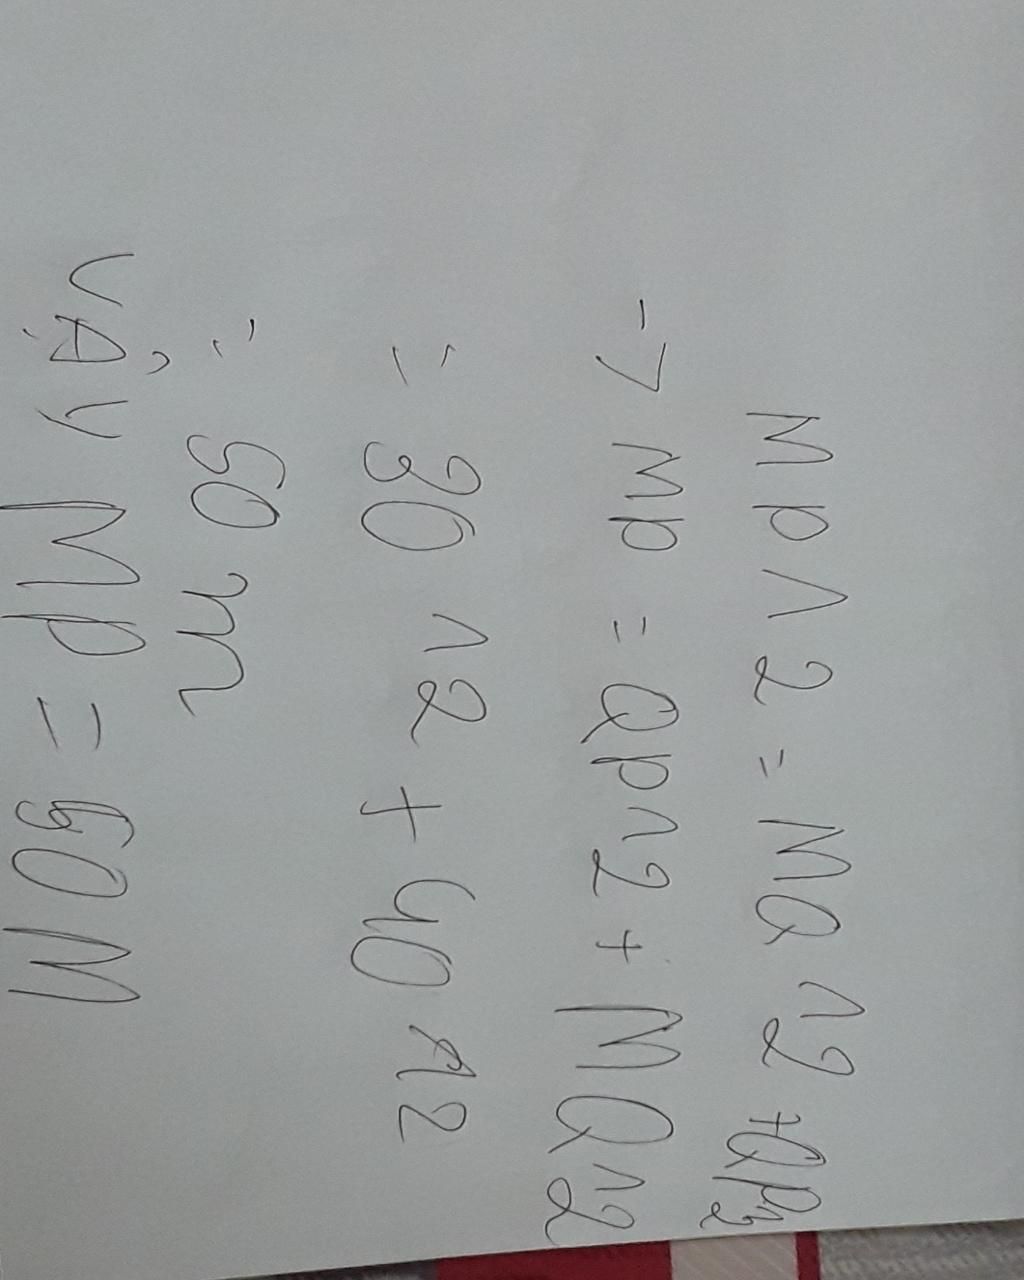 MP^2 = MQ^2 + QP^2
-> MP = QP^2 + MQ^2
= 30^2 + 40^2
= 50 m
Vậy MP = 50 M